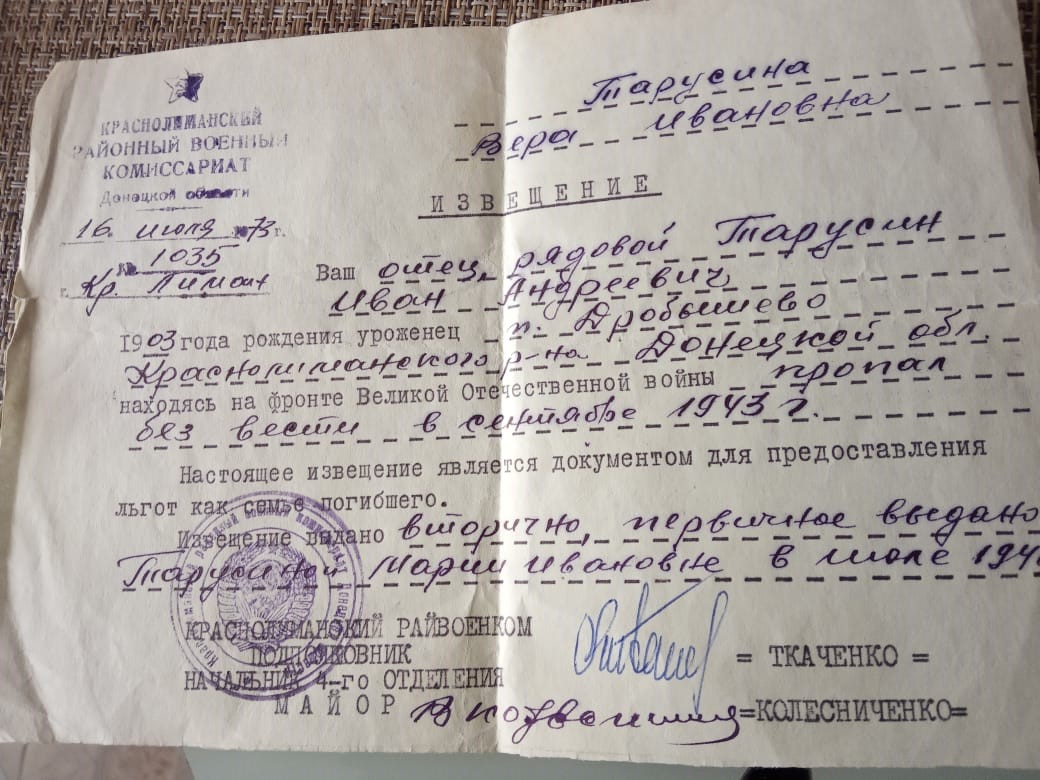 КРАСНОЛИМАНСКИЙ
РАЙОННЫЙ ВОЕННЫЙ
КОМИССАРИАТ
Донецкой области
16 июля 1973 г.
№ 1035
г. Кр. Лиман
Тарусина
Вера Ивановна
ИЗВЕЩЕНИЕ
Ваш отец, рядовой Тарусин
Иван Андреевич,
1903 года рождения уроженец п. Дробышево
Краснолиманского р-на Донецкой обл.
находясь на фронте Великой Отечественной войны пропал
без вести в сентябре 1943 г.
Настоящее извещение является документом для предоставления
льгот как семье погибшего.
Извещение выдано вторично, первичное выдано
Тарусиной Марии Ивановне в июле
КРАСНОЛИМАНСКИЙ РАЙВОЕНКОМ
ПОДПОЛКОВНИК = ТКАЧЕНКО =
НАЧАЛЬНИК 4-го ОТДЕЛЕНИЯ
МАЙОР =КОЛЕСНИЧЕНКО=